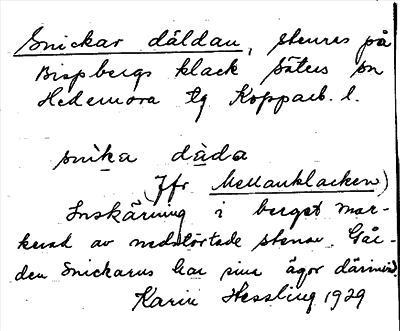 Snickar däldan, stenrös på
Bispbergs klack Säters sn
Hedemora tg Kopparb. l.
snika dàda
(Jfr Mellanklacken)
Inskärning i berget mar-
kerad av nedstörtade stenar. Går-
den Snickarns har sina ägor därinvid.
Karin Hessling 1929